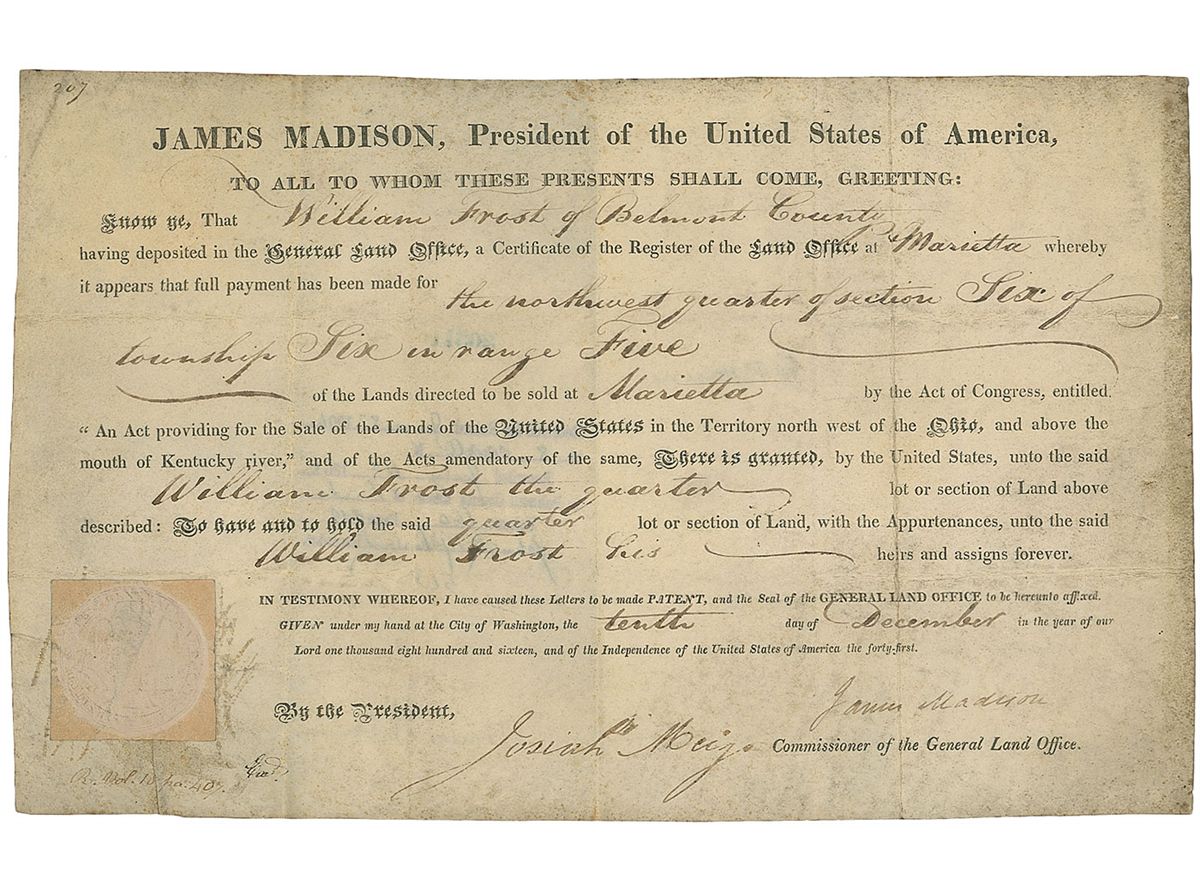 207
JAMES MADISON, President of the United States of America,
TO ALL TO WHOM THESE PRESENTS SHALL COME, GREETING:
Know ye, That William Frost of Belmont County
having deposited in the General Land Office, a Certificate of the Register of the Land Office at Marietta whereby
it appears that full payment has been made for the northwest quarter of section Six of
township Six in range Five
of the Lands directed to be sold at Marietta by the Act of Congress, entitled.
“An Act providing for the Sale of the Lands of the United States in the Territory north west of the Ohio, and above the
mouth of Kentucky river,” and of the Acts amendatory of the same, There is granted, by the United States, unto the said
William Frost the quarter lot or section of Land above
described: To have and to hold the said quarter lot or section of Land, with the Appurtenances, unto the said
William Frost his heirs and assigns forever.
IN TESTIMONY WHEREOF, I have caused these Letters to be made PATENT, and the Seal of the GENERAL LAND OFFICE to be hereunto affixed.
GIVEN under my hand at the City of Washington, the tenth day of December in the year of our
Lord one thousand eight hundred and sixteen, and of the Independence of the United States of America the forty-first.
James Madison
By the President,
Josiah Meigs Commissioner of the General Land Office.
R. Vol. 10 pa: 407.